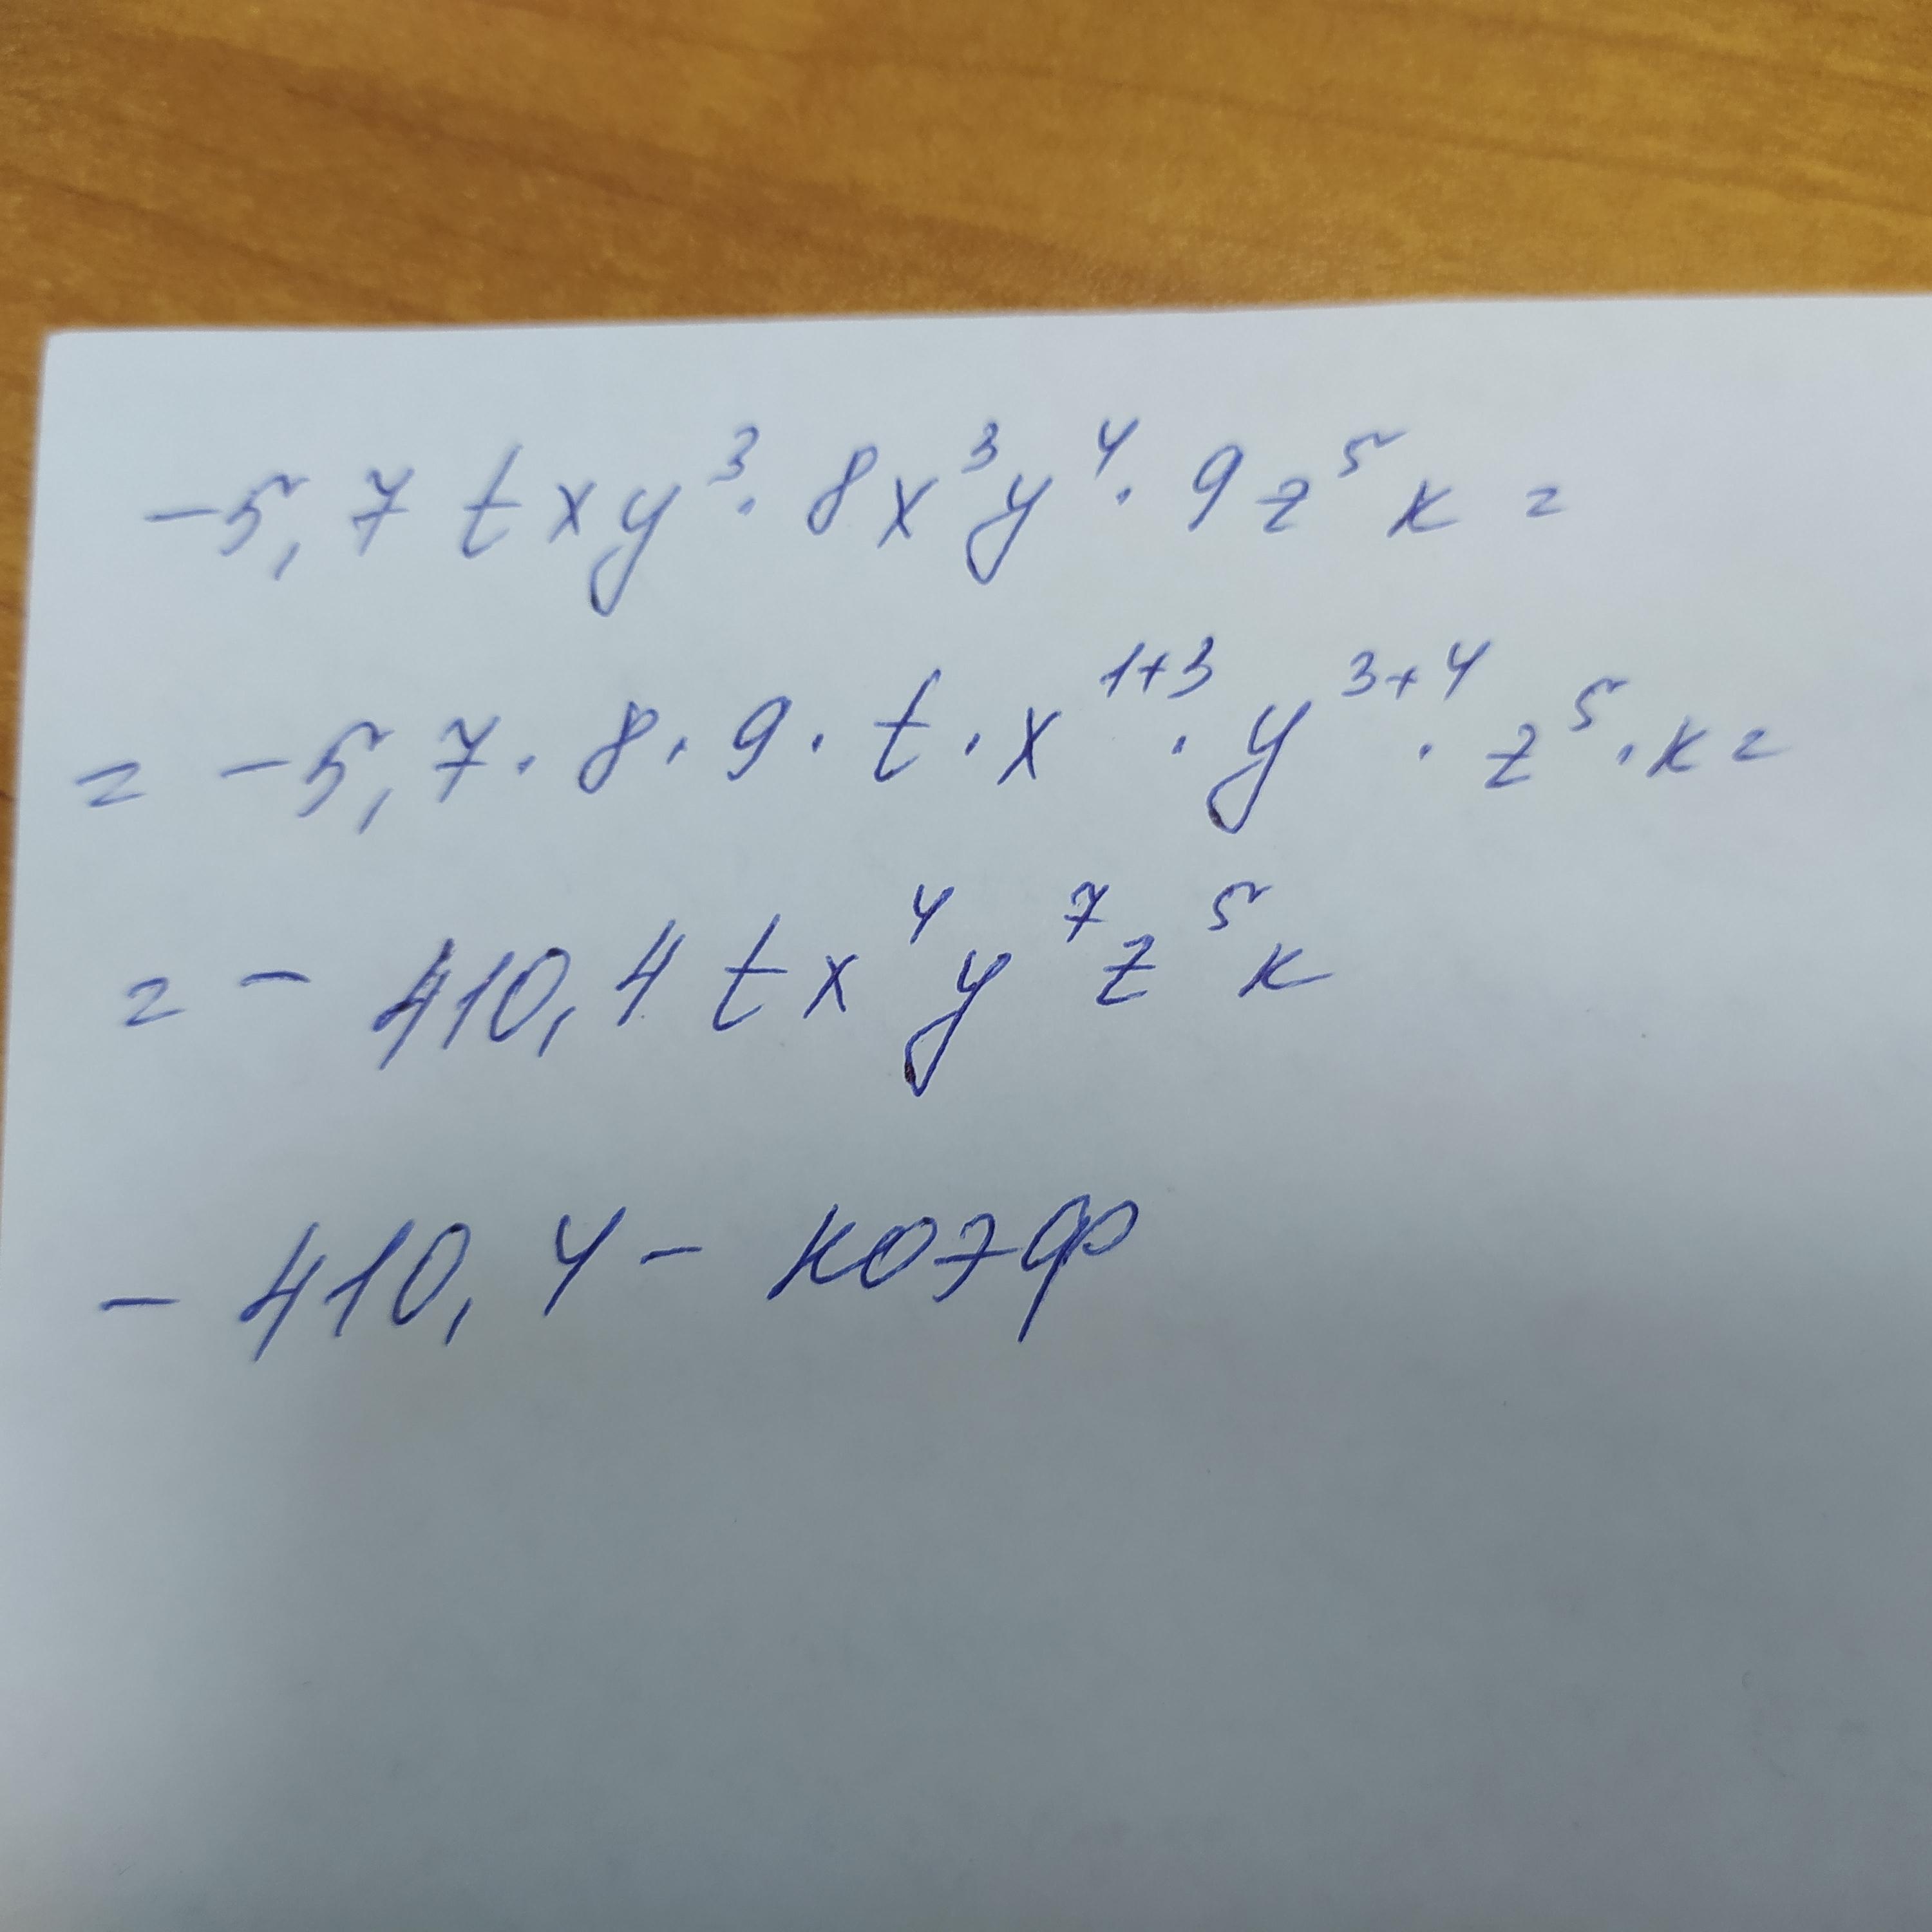 -5,7 t x y³ · 8x³y⁴ · 9z⁵к =
= -5,7 · 8 · 9 · t · x¹⁺³ · y³⁺⁴ · z⁵ · к =
= - 410,4 t x⁴ y⁷ z⁵ к
- 410,4 - коэф